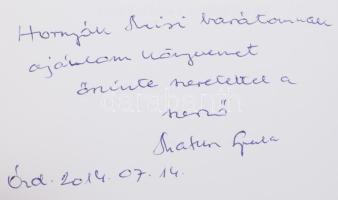 Hornyák Misi barátomnak
ajánlom könyvemet
őszinte szeretettel a
szerző
Gyula
Érd. 2014. 07. 14.